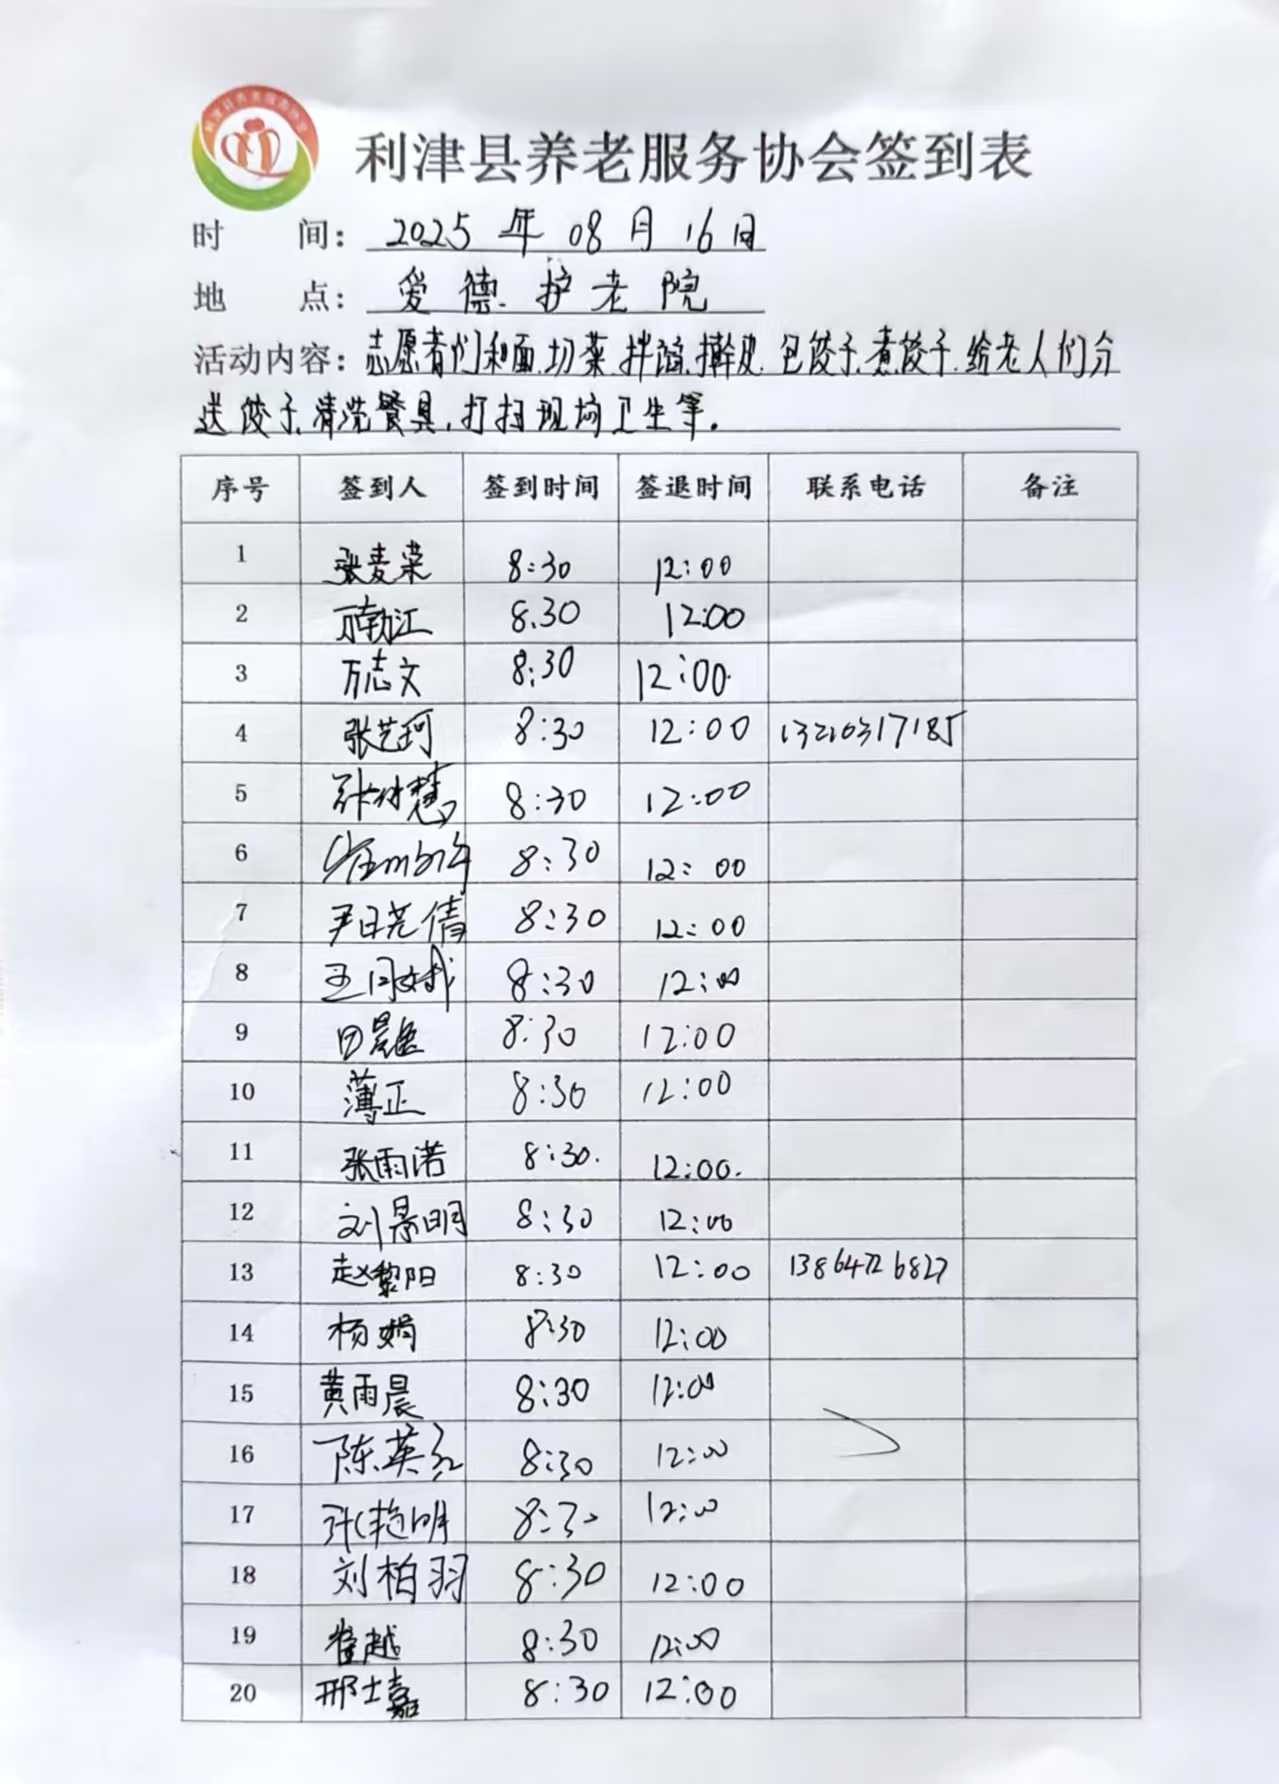 利津县养老服务协会签到表
时 间: 2025 年 08 月 16 日
地 点: 爱德护老院
活动内容: 志愿者们和面.切菜.拌馅.擀皮.包饺子.煮饺子.给老人们分
送饺子.清洗餐具,打扫现场卫生等。
序号 签到人 签到时间 签退时间 联系电话 备注
1 张麦荣 8:30 12:00
2 8.30 12:00
3 万志文 8:30 12:00
4 张艺珂 8:30 12:00 13210317185
5 8:30 12:00
6 8:30 12:00
7 尹日尧倩 8:30 12:00
8 8:30 12:00
9 8:30 12:00
10 薄正 8:30 12:00
11 张雨诺 8:30. 12:00.
12 刘景明 8:30 12:00
13 赵黎阳 8:30 12:00
14 杨娟 8:30 12:00
15 黄雨晨 8:30 12:00
16 陈英 8:30 12:00
17 8:30 12:00
18 刘柏羽 8:30 12:00
19 崔越 8:30 12:00
20 邢士嘉 8:30 12:00